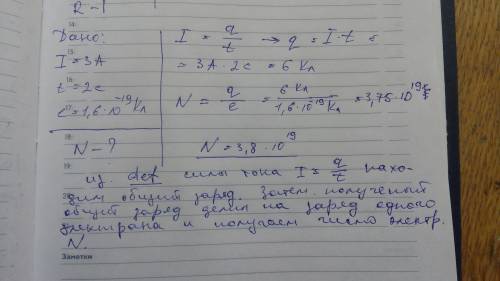 R – 1
Дано:
I = 3A
t = 2c
e = 1,6·10⁻¹⁹ Кл
N – ?
I = q/t → q = I·t =
= 3A · 2c = 6 Кл
N = q/e = 6 Кл / 1,6·10⁻¹⁹ Кл = 3,75·10¹⁹
N = 3,8·10¹⁹
из def силы тока I = q/t нахо-
дим общий заряд. Затем полученый
общий заряд делим на заряд одного
электрана и получаем число электр.
N.
Заметки